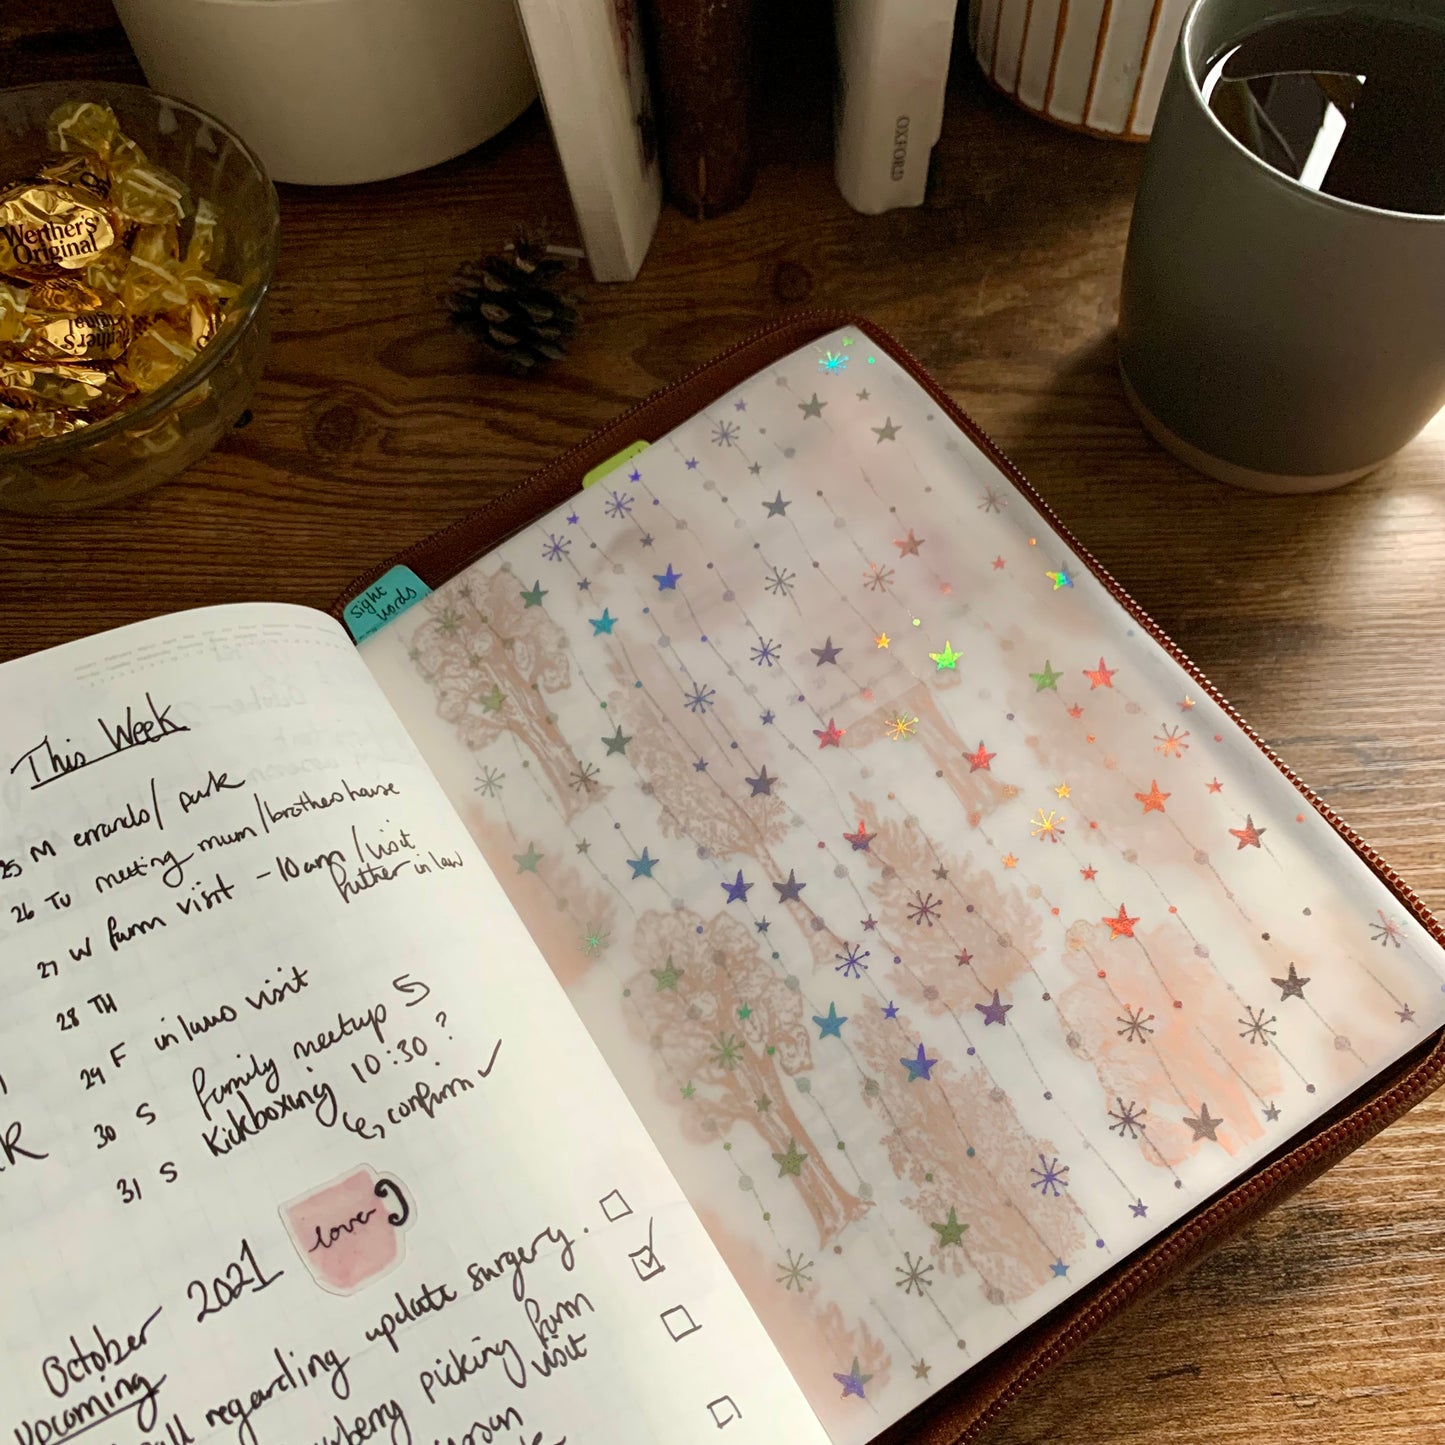 Werther's
Original
OXFORD
Sight
Words
This Week
25 M errands/ park
26 Tu meeting mum/brothers house
27 W farm visit - 10am/visit
in law
28 TH
29 F in laws visit
30 S family meetup 5
31 S Kickboxing 10:30 ?
confirm ✓
love
October 2021
Upcoming
call regarding update surgery.
picking farm
visit